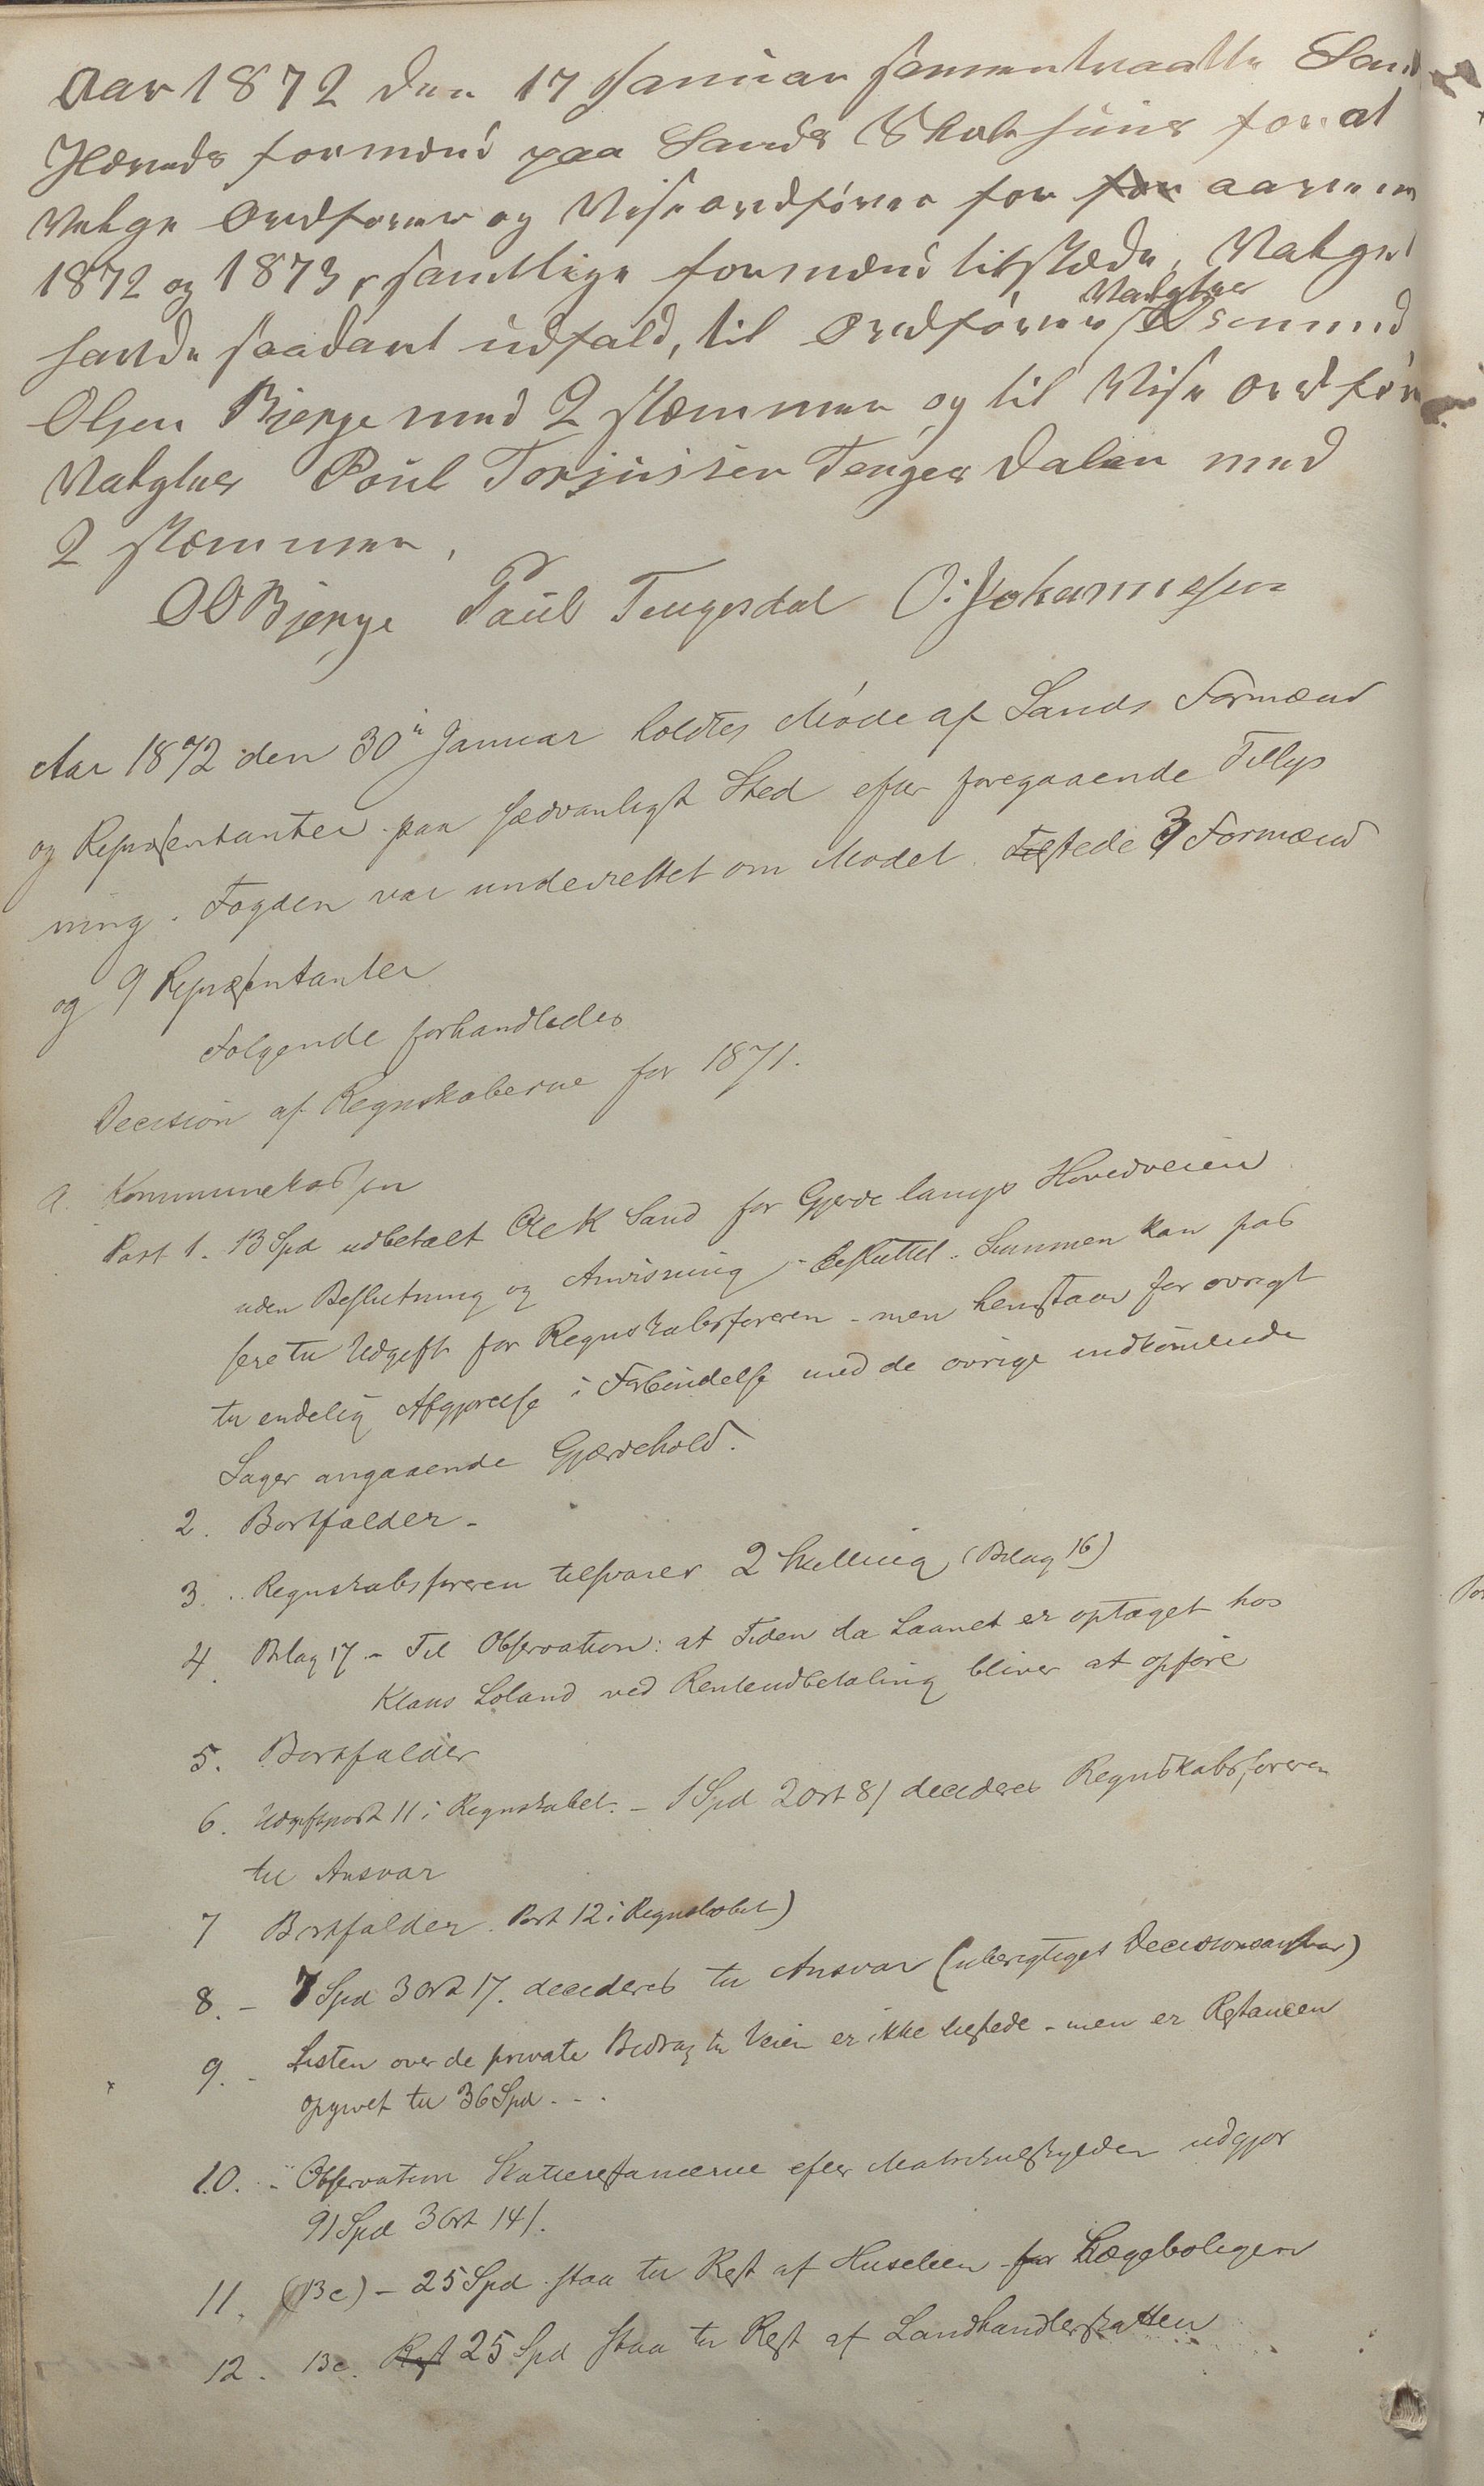 Aar 1872 den 17 Januar samentraatte Sand
Hæreds formænd paa Sands Skolehuus for at
Vælge Ordfører og Viseordfører for for aarene
1872 og 1873, samtlige formænd tilstæde, Valget
havde saadant udfald, til Ordfører Valgtes Osmund
Olsen Bjerge med 2 stæmmer, og til Vise ordfører
Valgtes Poul Torjussen Tengesdalen med
2 stæmmer.
OO Bjerge Paul Tengesdal O. Johannessen
Aar 1872 den 30te Januar holdtes Møde af Sands Formænd
og Repræsentanter paa sædvanligt Sted efter foregaaende Tillys
ning. Fogden var underrettet om Mødet. Tilstede 3 Formænd
og 9 Repræsentanter
Følgende forhandledes
Decision af Regnskaberne for 1871.
a. Kommunekassen
Post 1. 13 Spd udbetalt Ole K Sand for Gjerde langs Hovedveien
uden Beslutning og Anvisning - besluttet. Summen kan pas
sere til Udgift for Regnskabsføreren - men henstaar for øvrigt
til endelig Afgjørelse i Forbindelse med de øvrige indkomne
Sager angaaende Gjærdehold.
2. Bortfalder -
3. Regnskabsføreren tilsvarer 2 Skilling (Bilag 16)
4. Bilag 17 - Til Observation: at Tiden da Laanet er optaget hos
Klaus Løland ved Renteudbetaling bliver at opføre
5. Bortfalder
6. Udgiftspost 11 i Regnskabet. - 1 Spd 2 ort 8 / decideres Regnskabsføreren
til Ansvar
7 Bortfalder. Post 12 i Regnskabet)
8. - 7 Spd 3 ort 17. decideres til Ansvar (uberigtiget Decisionsansvar)
9. - Listen over de private Bidrag til Veien er ikke tilstede - men er Restancen
opgivet til 36 Spd. - .
10. - Observation Skatterestancerne efter Matrikulskylden udgjør
91 Spd 3 Ort 14 /.
11. (13c) - 25 Spd. staa til Rest af Huseleien for Lægeboligen
12. 13c. Rest 25 Spd staa til Rest af Landhandlerskatten